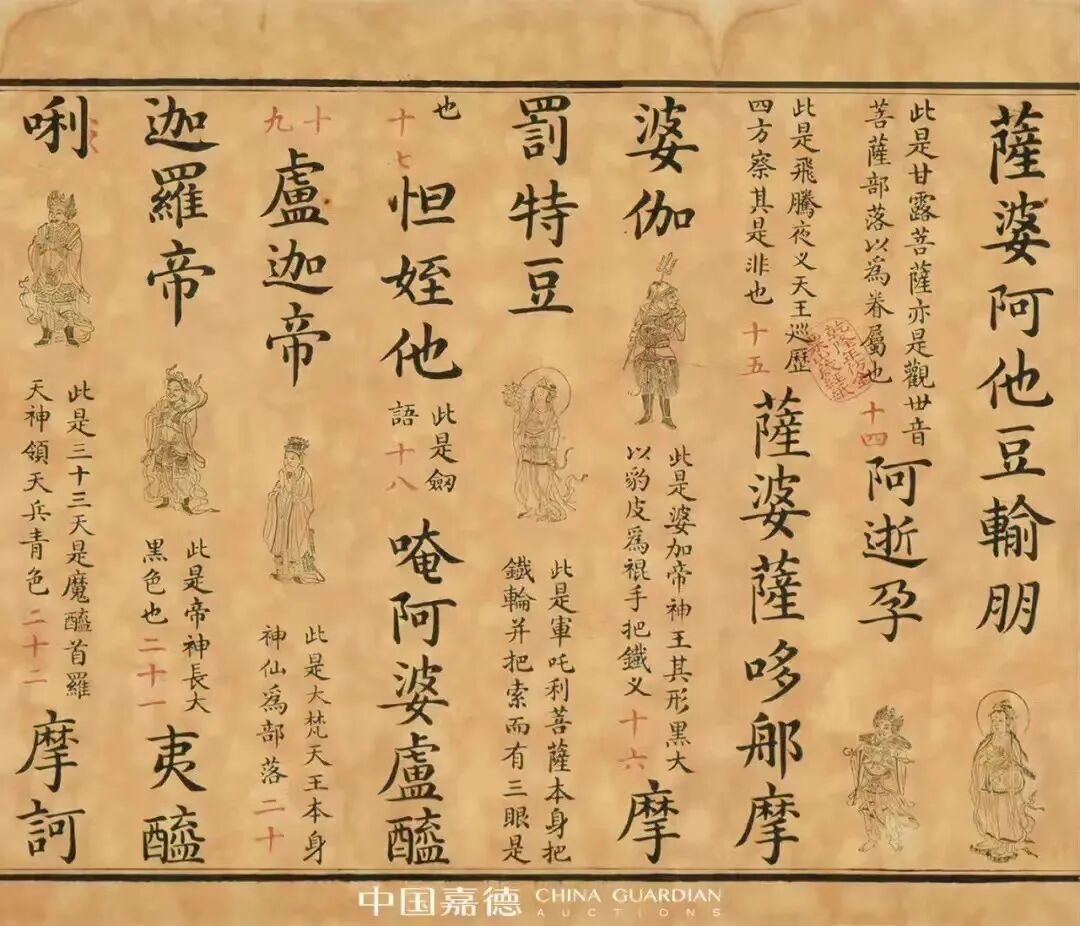 薩婆阿他豆輸朋
此是甘露菩薩亦是觀世音
菩薩部落以為眷屬也 十四 阿逝孕
此是飛騰夜叉天王巡歷
四方察其是非也 十五 薩婆薩哆那摩
婆伽 此是婆加帝神王其形黑大
以豹皮為裩手把鐵叉 十六 摩
罰特豆 此是軍吒利菩薩本身把
鐵輪并把索而有三眼是
也 十七 怛姪他 此是劒
語 十八 唵阿婆盧醯
十九 盧迦帝 此是大梵天王本身
神仙為部落 二十
迦羅帝 此是帝神長大
黑色也 二十一 夷醯
唎 此是三十三天是魔醯首羅
天神領天兵青色 二十二 摩訶
中国嘉德 CHINA GUARDIAN
AUCTIONS